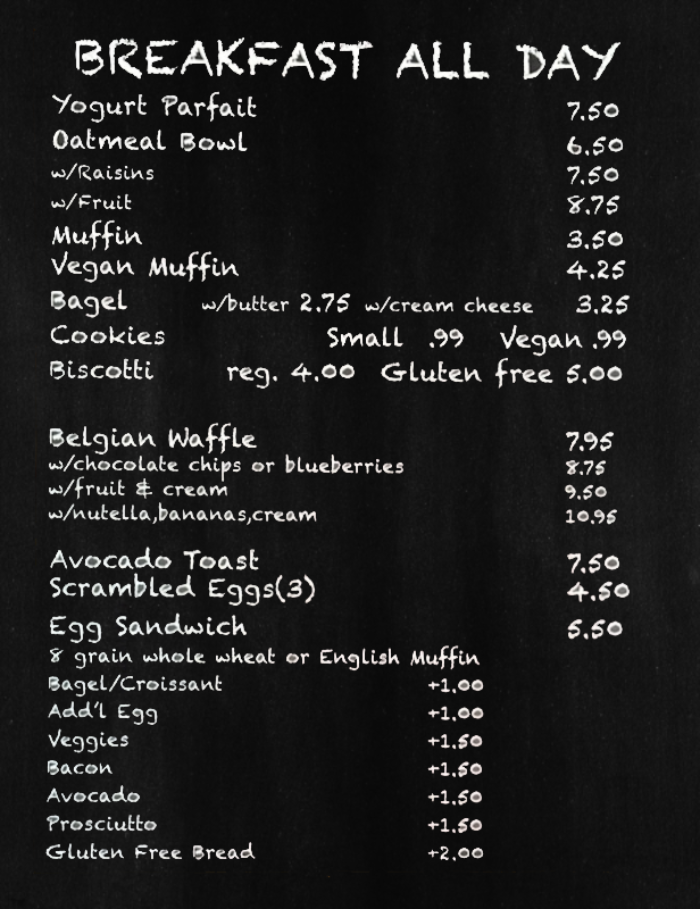 BREAKFAST ALL DAY
Yogurt Parfait 7.50
Oatmeal Bowl 6.50
w/Raisins 7.50
w/Fruit 8.75
Muffin 3.50
Vegan Muffin 4.25
Bagel w/butter 2.75 w/cream cheese 3.25
Cookies Small .99 Vegan .99
Biscotti reg. 4.00 Gluten free 5.00
Belgian Waffle 7.95
w/chocolate chips or blueberries 8.75
w/fruit & cream 9.50
w/nutella,bananas,cream 10.95
Avocado Toast 7.50
Scrambled Eggs(3) 4.50
Egg Sandwich 5.50
8 grain whole wheat or English Muffin
Bagel/Croissant +1.00
Add'l Egg +1.00
Veggies +1.50
Bacon +1.50
Avocado +1.50
Prosciutto +1.50
Gluten Free Bread +2.00